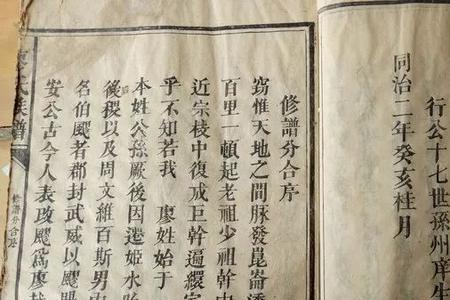 行公十七世孫州庠生
同治二年癸亥桂月
修譜分合序
竊惟天地之間脉發崑崙
百里一頓起老祖少祖幹中
近宗枝中復成巨幹遍繯
乎不知若我 廖姓始于
本姓公孫厥後因遣姬水
後稷以及周文維百斯男
名伯颺者郡封武威以颺
安公古今人表改颺為廖
氏族譜
修譜分合序